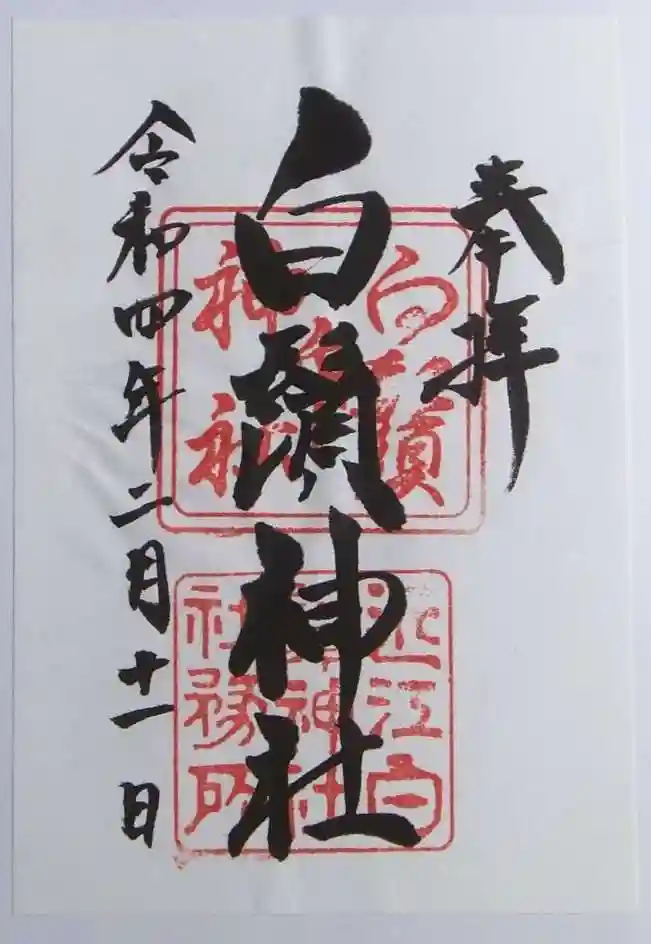 奉拝
白鬚神社
令和四年二月十一日
近江白
神社
社務所